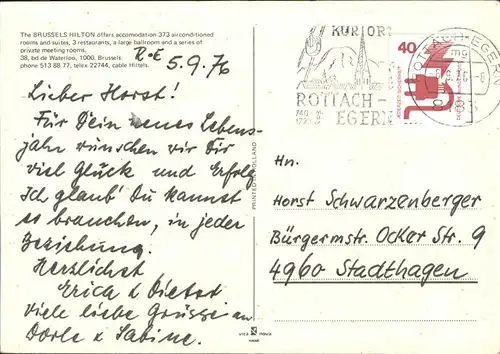 The BRUSSELS HILTON offers accomodation 373 airconditioned
rooms and suites, 3 restaurants, a large ballroom and a series of
private meeting rooms.
38, bd de Waterloo, 1000. Brussels
phone 513 88 77, telex 22744, cable Hiltels.
R.-E
5.9.76
Lieber Horst!
Für Dein neues Lebens-
jahr wünschen wir Dir
viel Glück und Erfolg.
Ich glaub' Du kannst
es brauchen, in jeder
Beziehung.
Herzlichst
Erich & Dieter
Viele liebe Grüsse an
Dorle & Sabine.
PRINTED IN HOLLAND
KURORT
ROTTACH-
EGERN
ROTTACH-EGERN
40
JEDERZEIT SICHERHEIT
Hn.
Horst Schwarzenberger
Bürgermstr. Ocker Str. 9
4960 Stadthagen